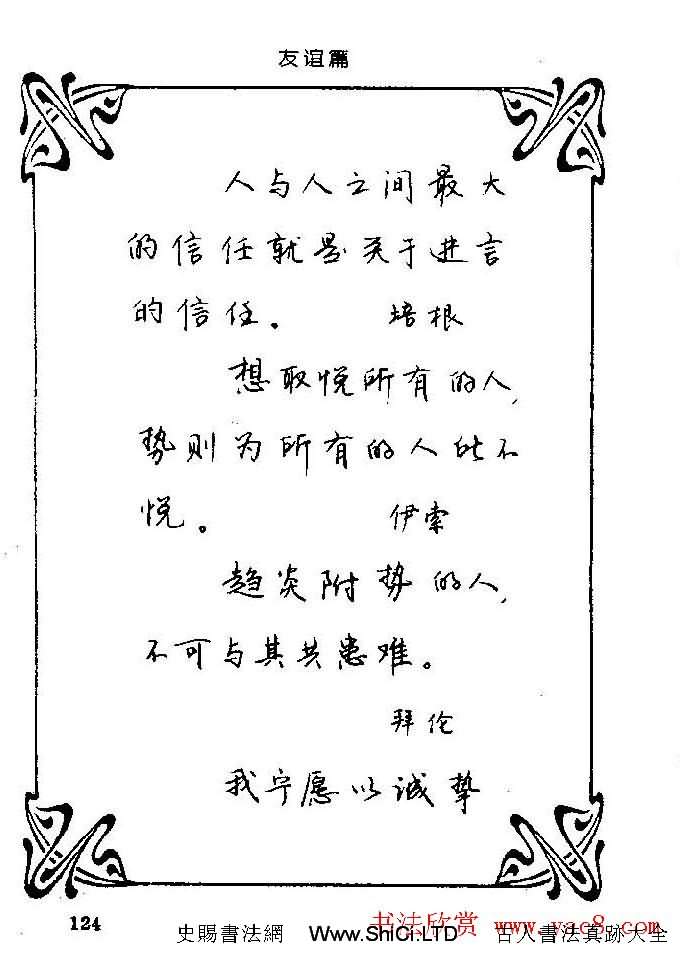 友谊篇
人与人之间最大
的信任就是关于进言
的信任。 培根
想取悦所有的人,
势则为所有的人所不
悦。 伊索
趋炎附势的人,
不可与其共患难。
拜伦
我宁愿以诚挚
124
史賜書法網 www.ShiCi.LTD 古人書法真跡大全
书法欣赏 www.yac8.com